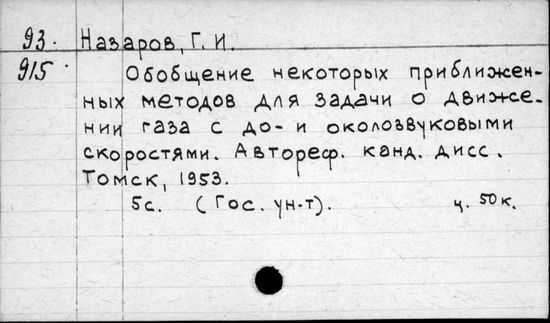 93. Назаров, Г. И.
915. Обобщение некоторых приближен-
ных методов для задачи о движе-
нии газа с до- и околозвуковыми
скоростями. Автореф. канд. дисс.
Томск, 1953.
5с. (Гос. ун-т). ц. 50 к.